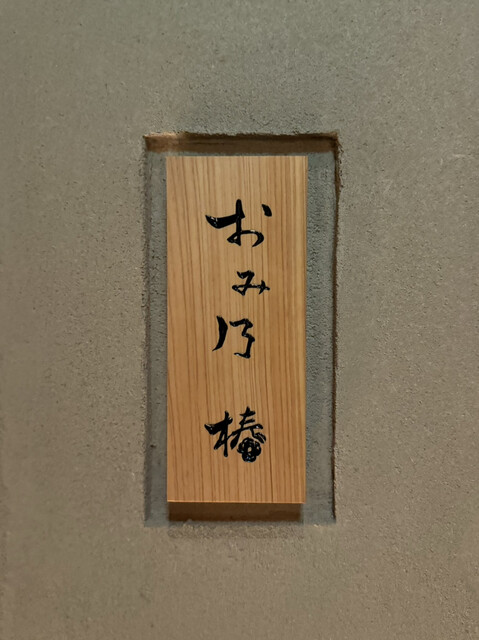 おみ乃 椿